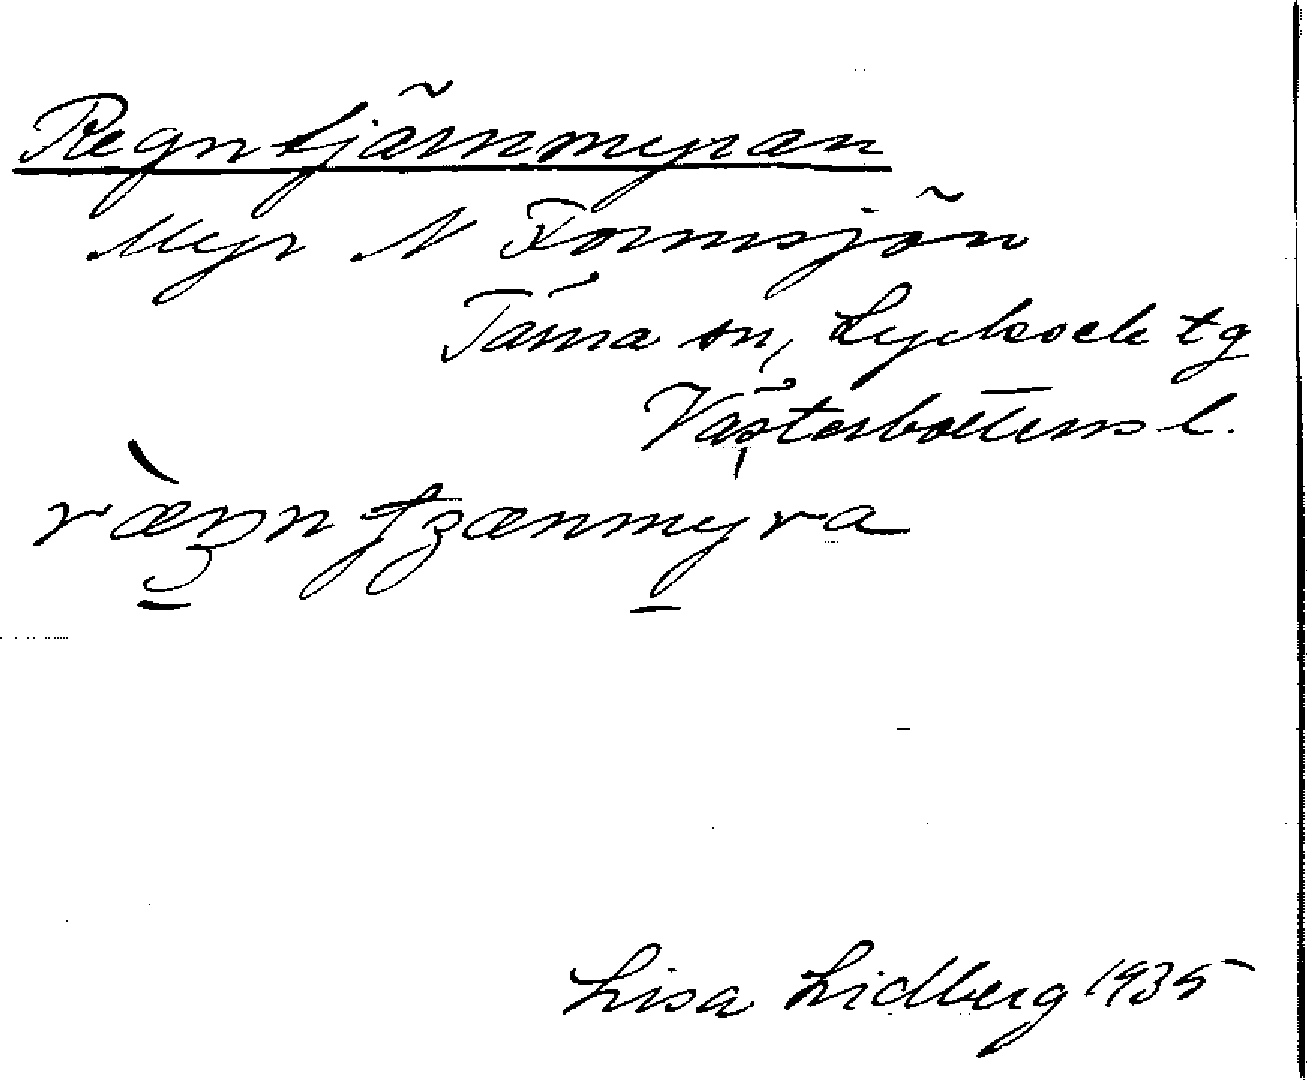 Regntjärnmyran
Myr N Formsjön
Tärna sn, Lycksele tg
Västerbottens l.
ræŋn tjænmyra
Lisa Lidberg 1935